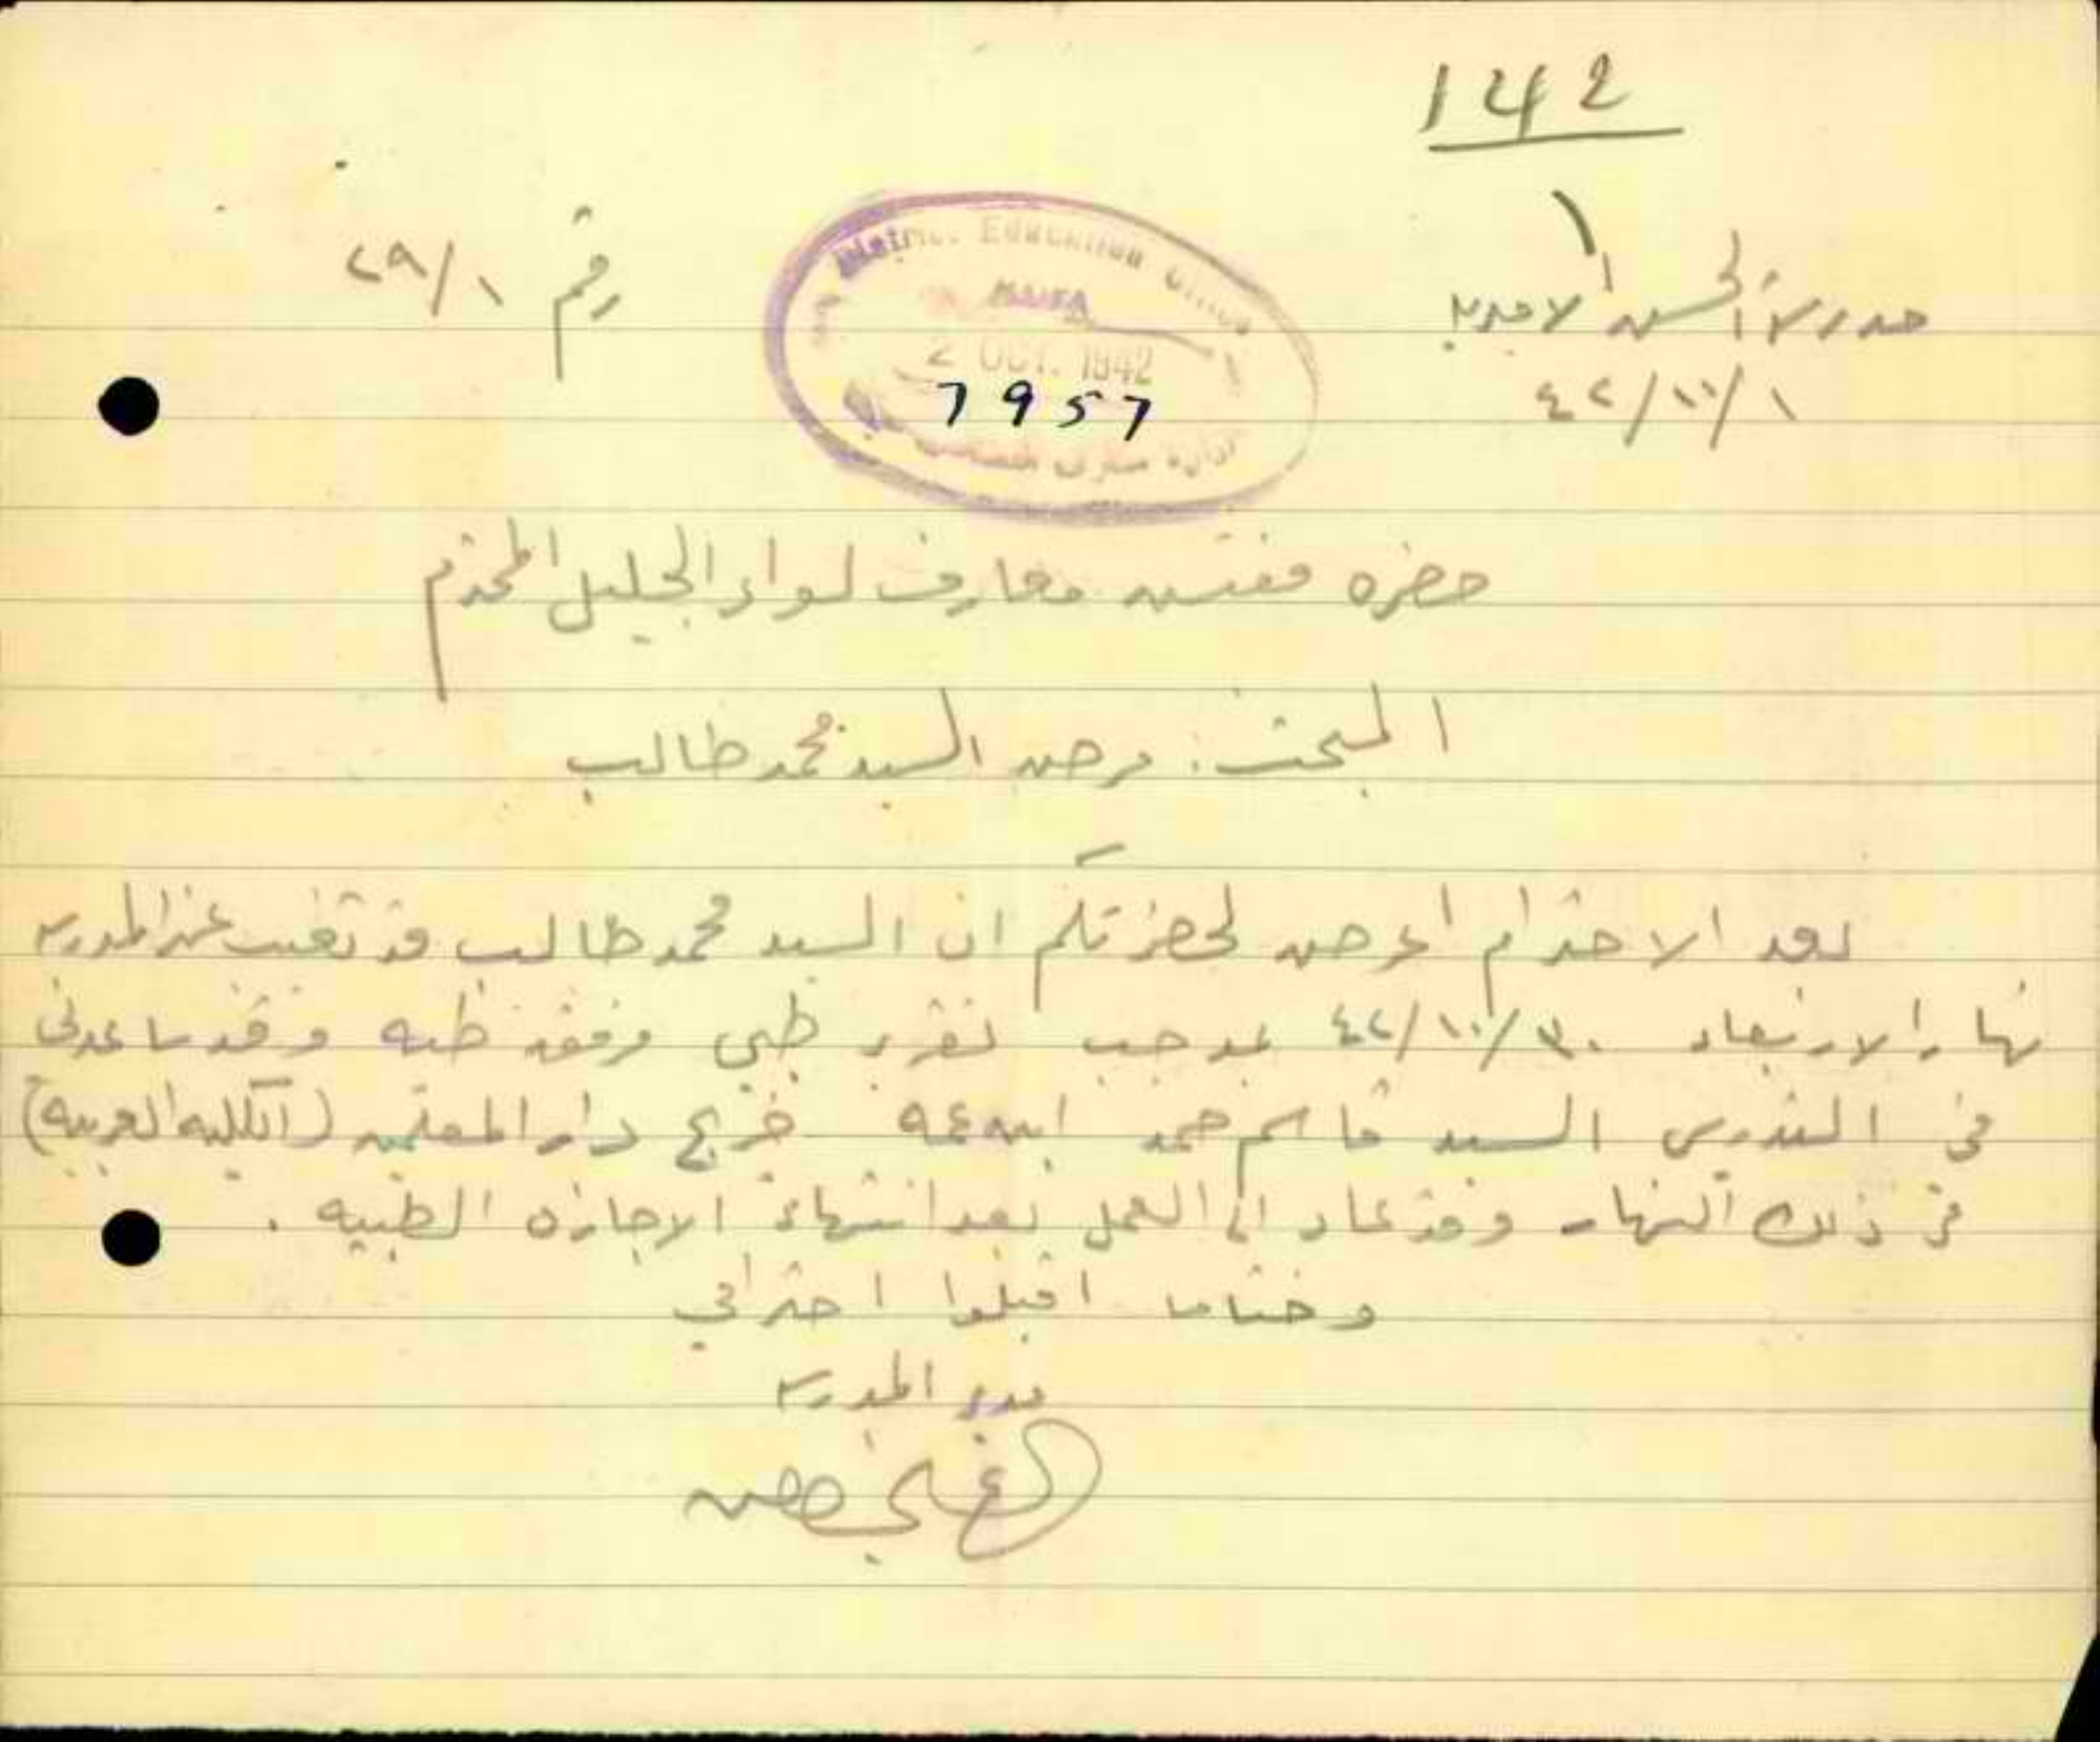 142
مدرسة الحسن الاميرية
رقم ٢٩/١
District Education Office
HAIFA
2 OCT. 1942
7957
ادارة معارف
٤٢/١٠/١
حضرة مفتش معارف لواء الجليل المحترم
المبحث: مرض السيد محمد طالب
بعد الاحترام اعرض لحضرتكم ان السيد محمد طالب قد تغيب عن المدرسة
نهار الاربعاء ٤٢/١٠/٣٠ بموجب تقرير طبي وفقه طيه وقد ساعدني
في التدريس السيد قاسم حمد ابن عمه خريج دار المعلمين (الكلية العربية)
في ذلك النهار وقد عاد الى العمل بعد انتهاء الاجازة الطبية .
وختاما اقبلوا احترامي
مدير المدرسة